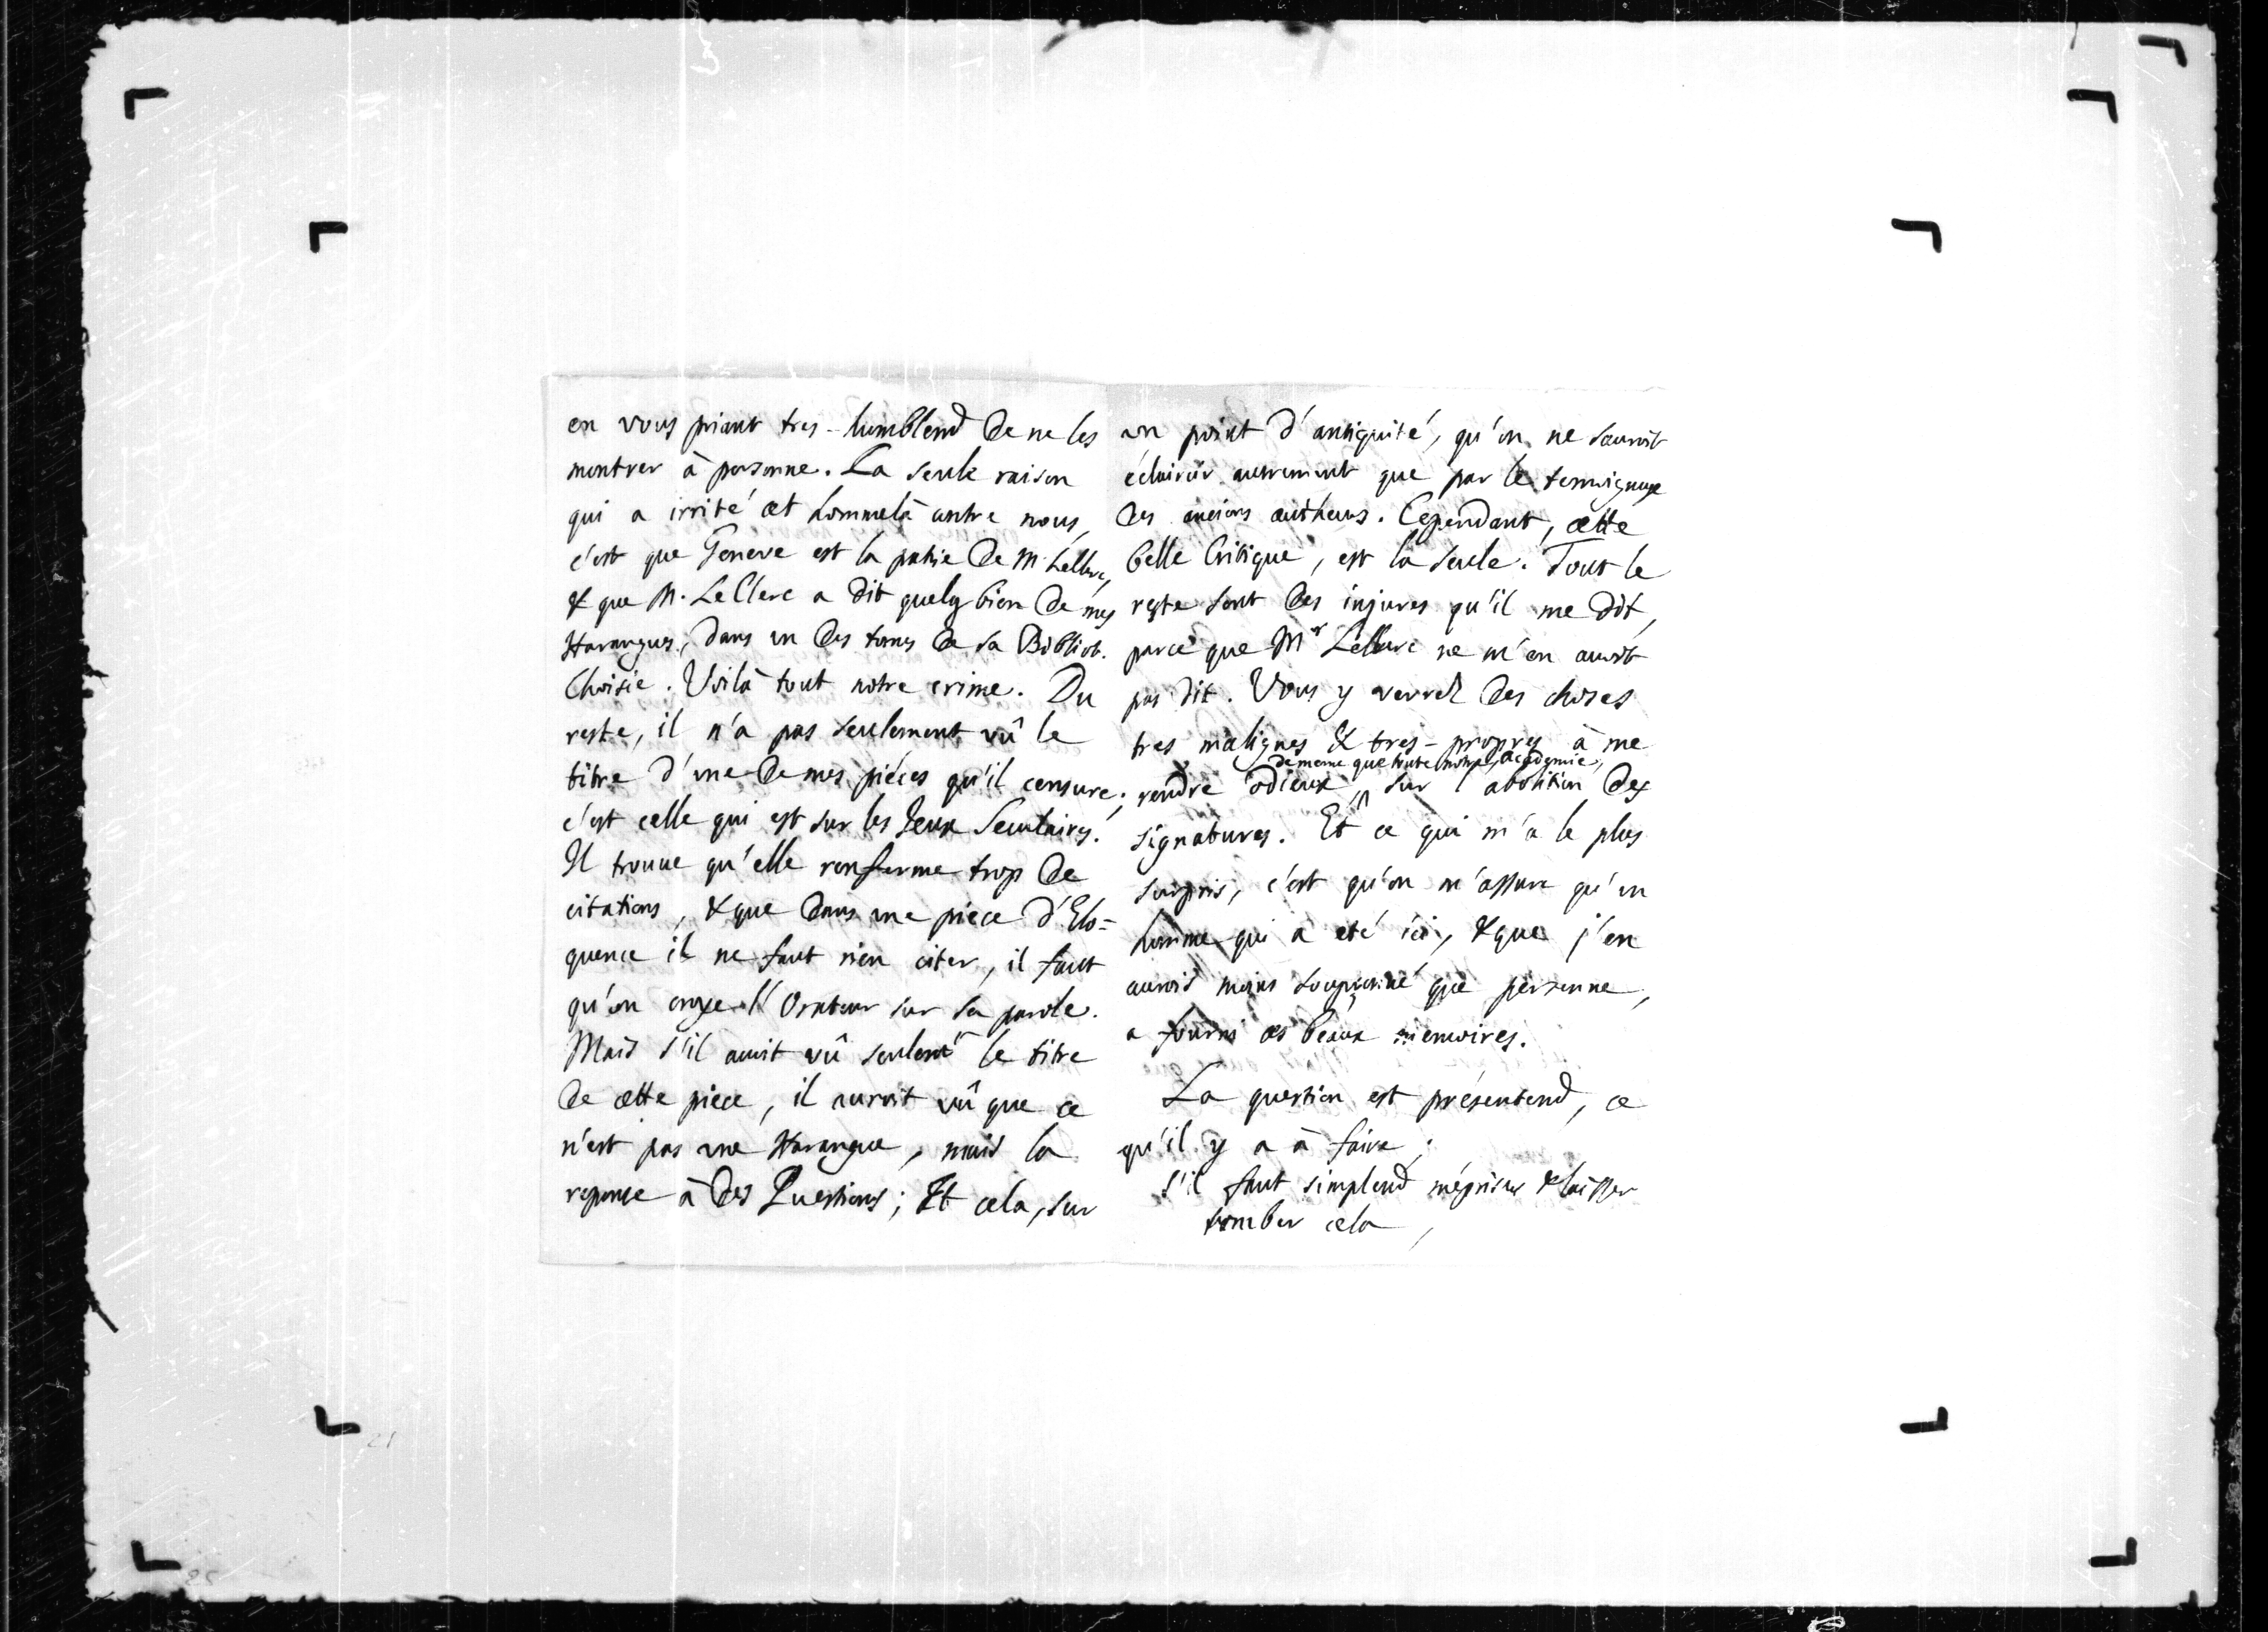 en vous priant tres-humblemt de ne les
montrer à personne. La seule raison
qui a irrité cet hommelà contre nous,
c'est que Geneve est la patrie de M. LeClerc,
& que M. LeClerc a dit quelq bien de mes
Harangues, dans un des tomes de sa Biblioth.
Choisie. Voilà tout notre crime. Du
reste, il n'a pas seulement vû le
titre d'une de mes piéces qu'il censure;
c'est celle qui est sur les Jeux Seculaires.
Il trouve qu'elle renferme trop de
citations, & que dans une piece d'Elo=
quence il ne faut rien citer, il faut
qu'on croye l'Orateur sur sa parole.
Mais s'il avoit vû seulemt le titre
de cette piece, il auroit vû que ce
n'est pas une Harangue, mais la
reponse à des Questions; Et cela, sur
un point d'antiquité, qu'on ne sauroit
éclaircir autrement que par le temoignage
des anciens autheurs. Cependant, cette
belle Critique, est la seule. Tout le
reste sont des injures qu'il me dit,
parce que Mr LeClerc ne m'en avoit
pas dit. Vous y verrez des choses
tres malignes & tres-propres à me
de meme que toute notre Academie,
rendre odieux, sur l'abolition des
signatures. Et ce qui m'a le plus
surpris, c'est qu'on m'assure qu'un
homme qui a eté ici, & que j'en
aurois moins soupçonné que personne,
a fourni ces beaux memoires.
La question est présentemt, ce
qu'il y a à faire;
s'il faut simplemt mépriser & laisser
tomber cela,